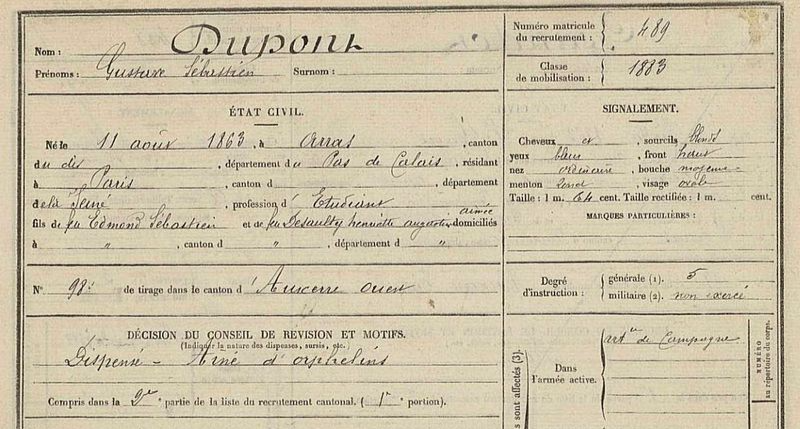 Nom : DUPONT
Prénoms : Gustave Sébastien Surnom :
Numéro matricule du recrutement : 489
Classe de mobilisation : 1883
ÉTAT CIVIL.
Né le 11 août 1863, à Arras, canton
du dit, département du Pas de Calais, résidant
à Paris, canton d , département
de la Seine, profession d' Etudiant
fils de feu Edmond Sébastien et de feu Desaulty henriette augustine aimée domiciliés
à " , canton d " , département d "
N° 98 de tirage dans le canton d'Auxerre Ouest
DÉCISION DU CONSEIL DE REVISION ET MOTIFS.
(Indiquer la nature des dispenses, sursis, etc.)
Dispensé - Aîné d'orphelins
Compris dans la 2e partie de la liste du recrutement cantonal. (1re portion).
SIGNALEMENT.
Cheveux et , sourcils blonds
yeux bleus , front haut
nez ordinaire , bouche moyenne
menton rond , visage ovale
Taille : 1 m. 64 cent. Taille rectifiée : 1 m. cent.
MARQUES PARTICULIÈRES :
Degré d'instruction : générale (1). 5
militaire (2). non exercé
sont affectés (3).
Dans l'armée active.
artie de Campagne
NUMÉRO
au répertoire du corps.